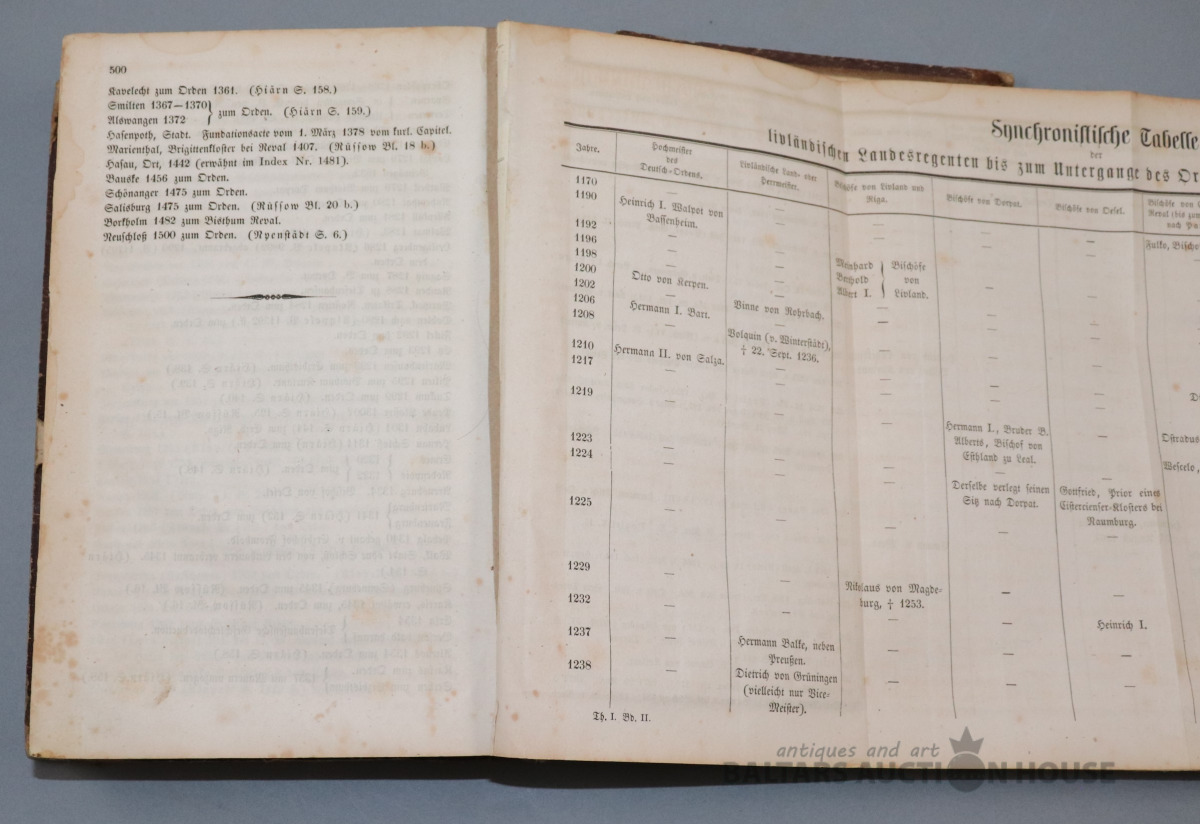 500
Kavelecht zum Orden 1361. (Hiärn S. 158.)
Smilten 1367—1370
Alswangen 1372
} zum Orden. (Hiärn S. 159.)
Hasenpoth, Stadt. Fundationsacte vom 1. März 1378 vom kurl. Capitel.
Marienthal, Brigittenkloster bei Reval 1407. (Rüssow Bl. 18 b.)
Hasau, Ort, 1442 (erwähnt im Index Nr. 1481).
Bauske 1456 zum Orden.
Schönanger 1475 zum Orden.
Salisburg 1475 zum Orden. (Rüssow Bl. 20 b.)
Borkholm 1482 zum Bisthum Reval.
Neuschloß 1500 zum Orden. (Nyenstädt S. 6.)
Synchronistische Tabelle
der
livländischen Landesregenten bis zum Untergange des Or
Jahre.
Hochmeister
des
Deutsch-Ordens.
Livländische Land- oder
Herrmeister.
Bischöfe von Livland und
Riga.
Bischöfe von Dorpat.
Bischöfe von Oesel.
1170
Fulko, Bischo
1190
Heinrich I. Walpot von
Bassenheim.
1192
1196
1198
Meinhard
Berthold
Albert I.
} Bischöfe
von
Livland.
1200
1202
Otto von Kerpen.
1206
Hermann I. Bart.
Vinne von Rohrbach.
1208
1210
Volquin (v. Winterstädt),
† 22. Sept. 1236.
1217
Hermann II. von Salza.
1219
1223
Hermann I., Bruder B.
Alberts, Bischof von
Esthland zu Leal.
Ostradus
1224
Wescelo,
1225
Derselbe verlegt seinen
Sitz nach Dorpat.
Gottfried, Prior eines
Cistercienser-Klosters bei
Naumburg.
1229
1232
Nikolaus von Magde-
burg, † 1253.
1237
Hermann Balke, neben
Preußen.
Heinrich I.
1238
Dietrich von Grüningen
(vielleicht nur Vice-
Meister).
Th. I. Bd. II.
antiques and art
BALTARS AUCTION HOUSE